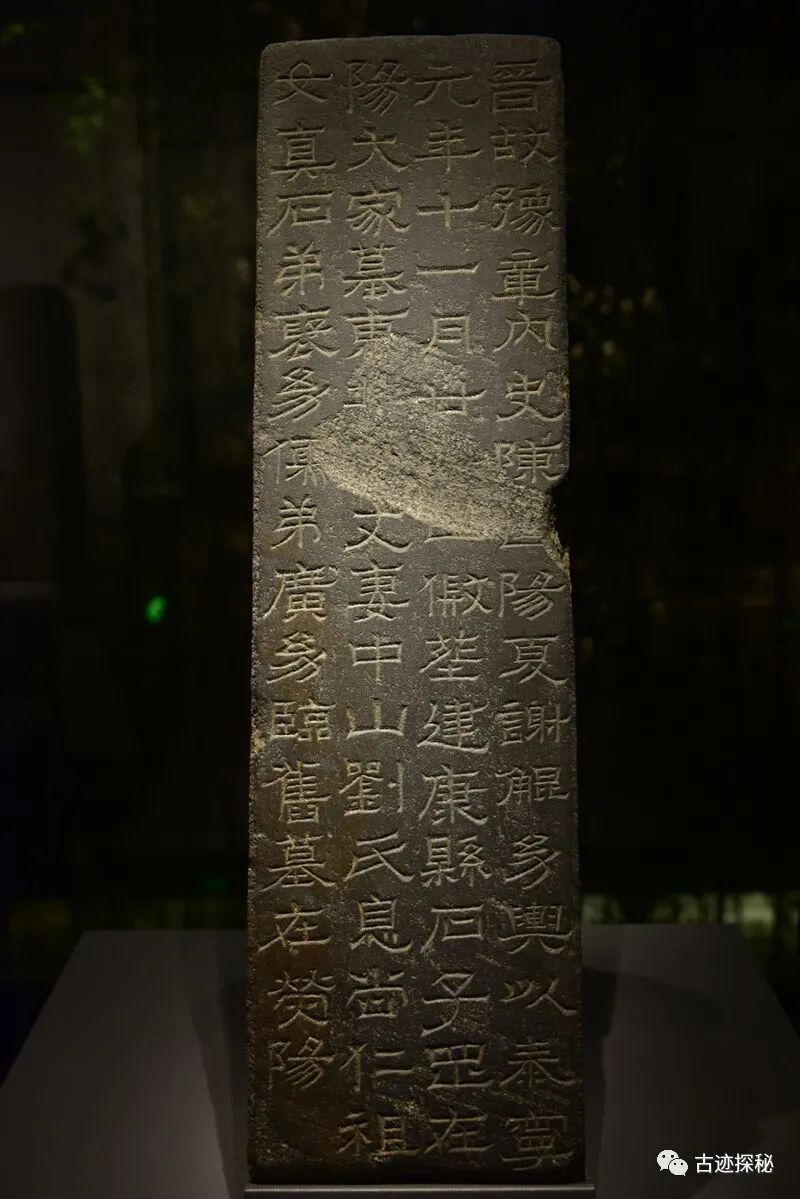 晉故豫章內史陳陽夏謝鯤幼輿以泰寧
元年十一月廿假葬建康縣石子罡在
陽大家墓東北丈妻中山劉氏息尚仁祖
女真石弟裒幼儒弟廣幼臨舊墓在熒陽
古迹探秘